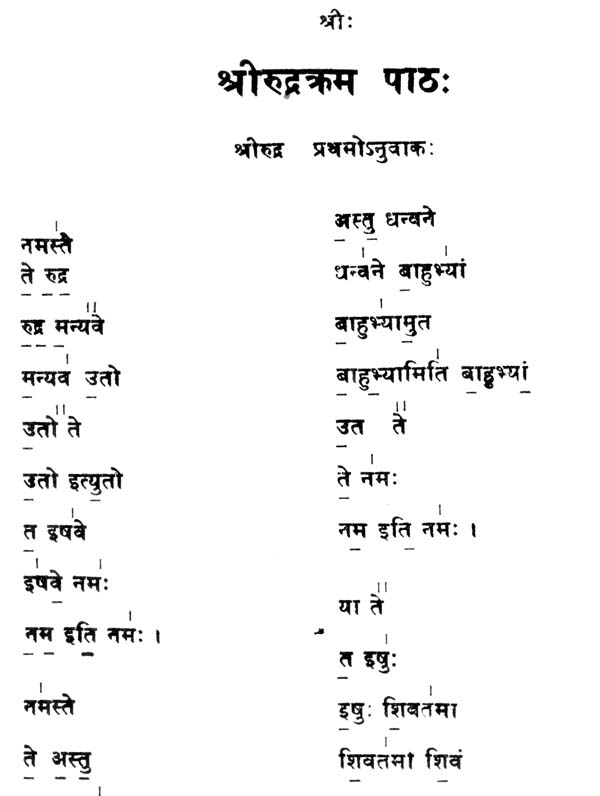 श्रीः
श्रीरुद्रक्रम पाठः
श्रीरुद्र प्रथमोऽनुवाकः
नमस्ते॑
ते॒ रु॒द्र॒
रु॒द्र॒ म॒न्यवे᳚
म॒न्यव॑ उ॒तो
उ॒तो᳚ ते
उ॒तो इत्यु॒तो
त॒ इष॑वे
इ॑ष॑वे॒ नमः॑
न॒म॒ इति॒ नमः॑ ।
नम॑स्ते
ते॒ अ॒स्तु॒
अ॒स्तु॒ धन्वने
धन्व॑ने बा॒हुभ्यां॑
बा॒हुभ्या॑मु॒त
बा॒हु॒भ्यामिति॑ बा॒हुभ्यां॒
उ॒त ते᳚
ते॒ नमः॑
नम॒ इति॒ नमः॑ ।
या ते᳚
त॒ इषुः॑
इ॒षुः शि॒वत॑मा
शि॒वत॑मा शि॒वं